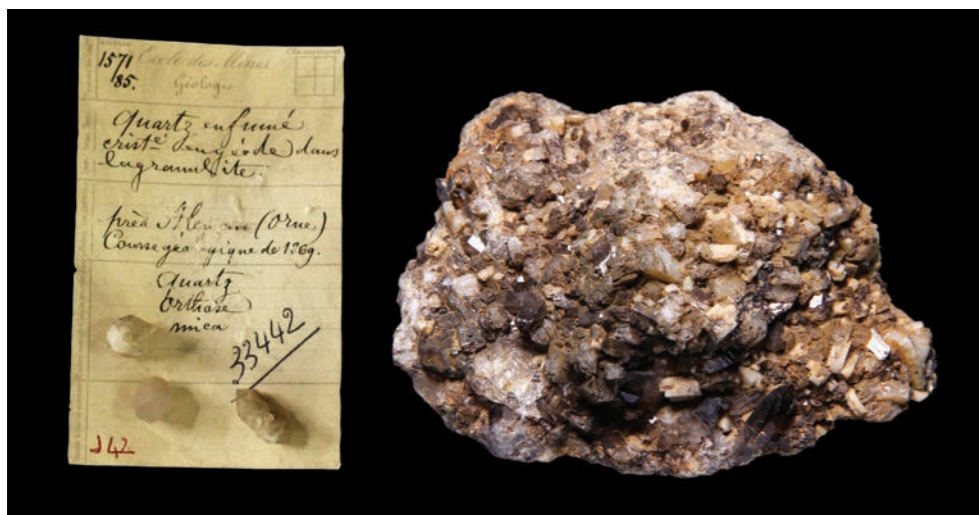 1571
85.
Ecole des Mines
Géologie
quartz enfumé
cristé en géode dans
la granulite.
près (Orne)
Course géologique de 1869.
quartz
Orthose
mica
33442
J 42